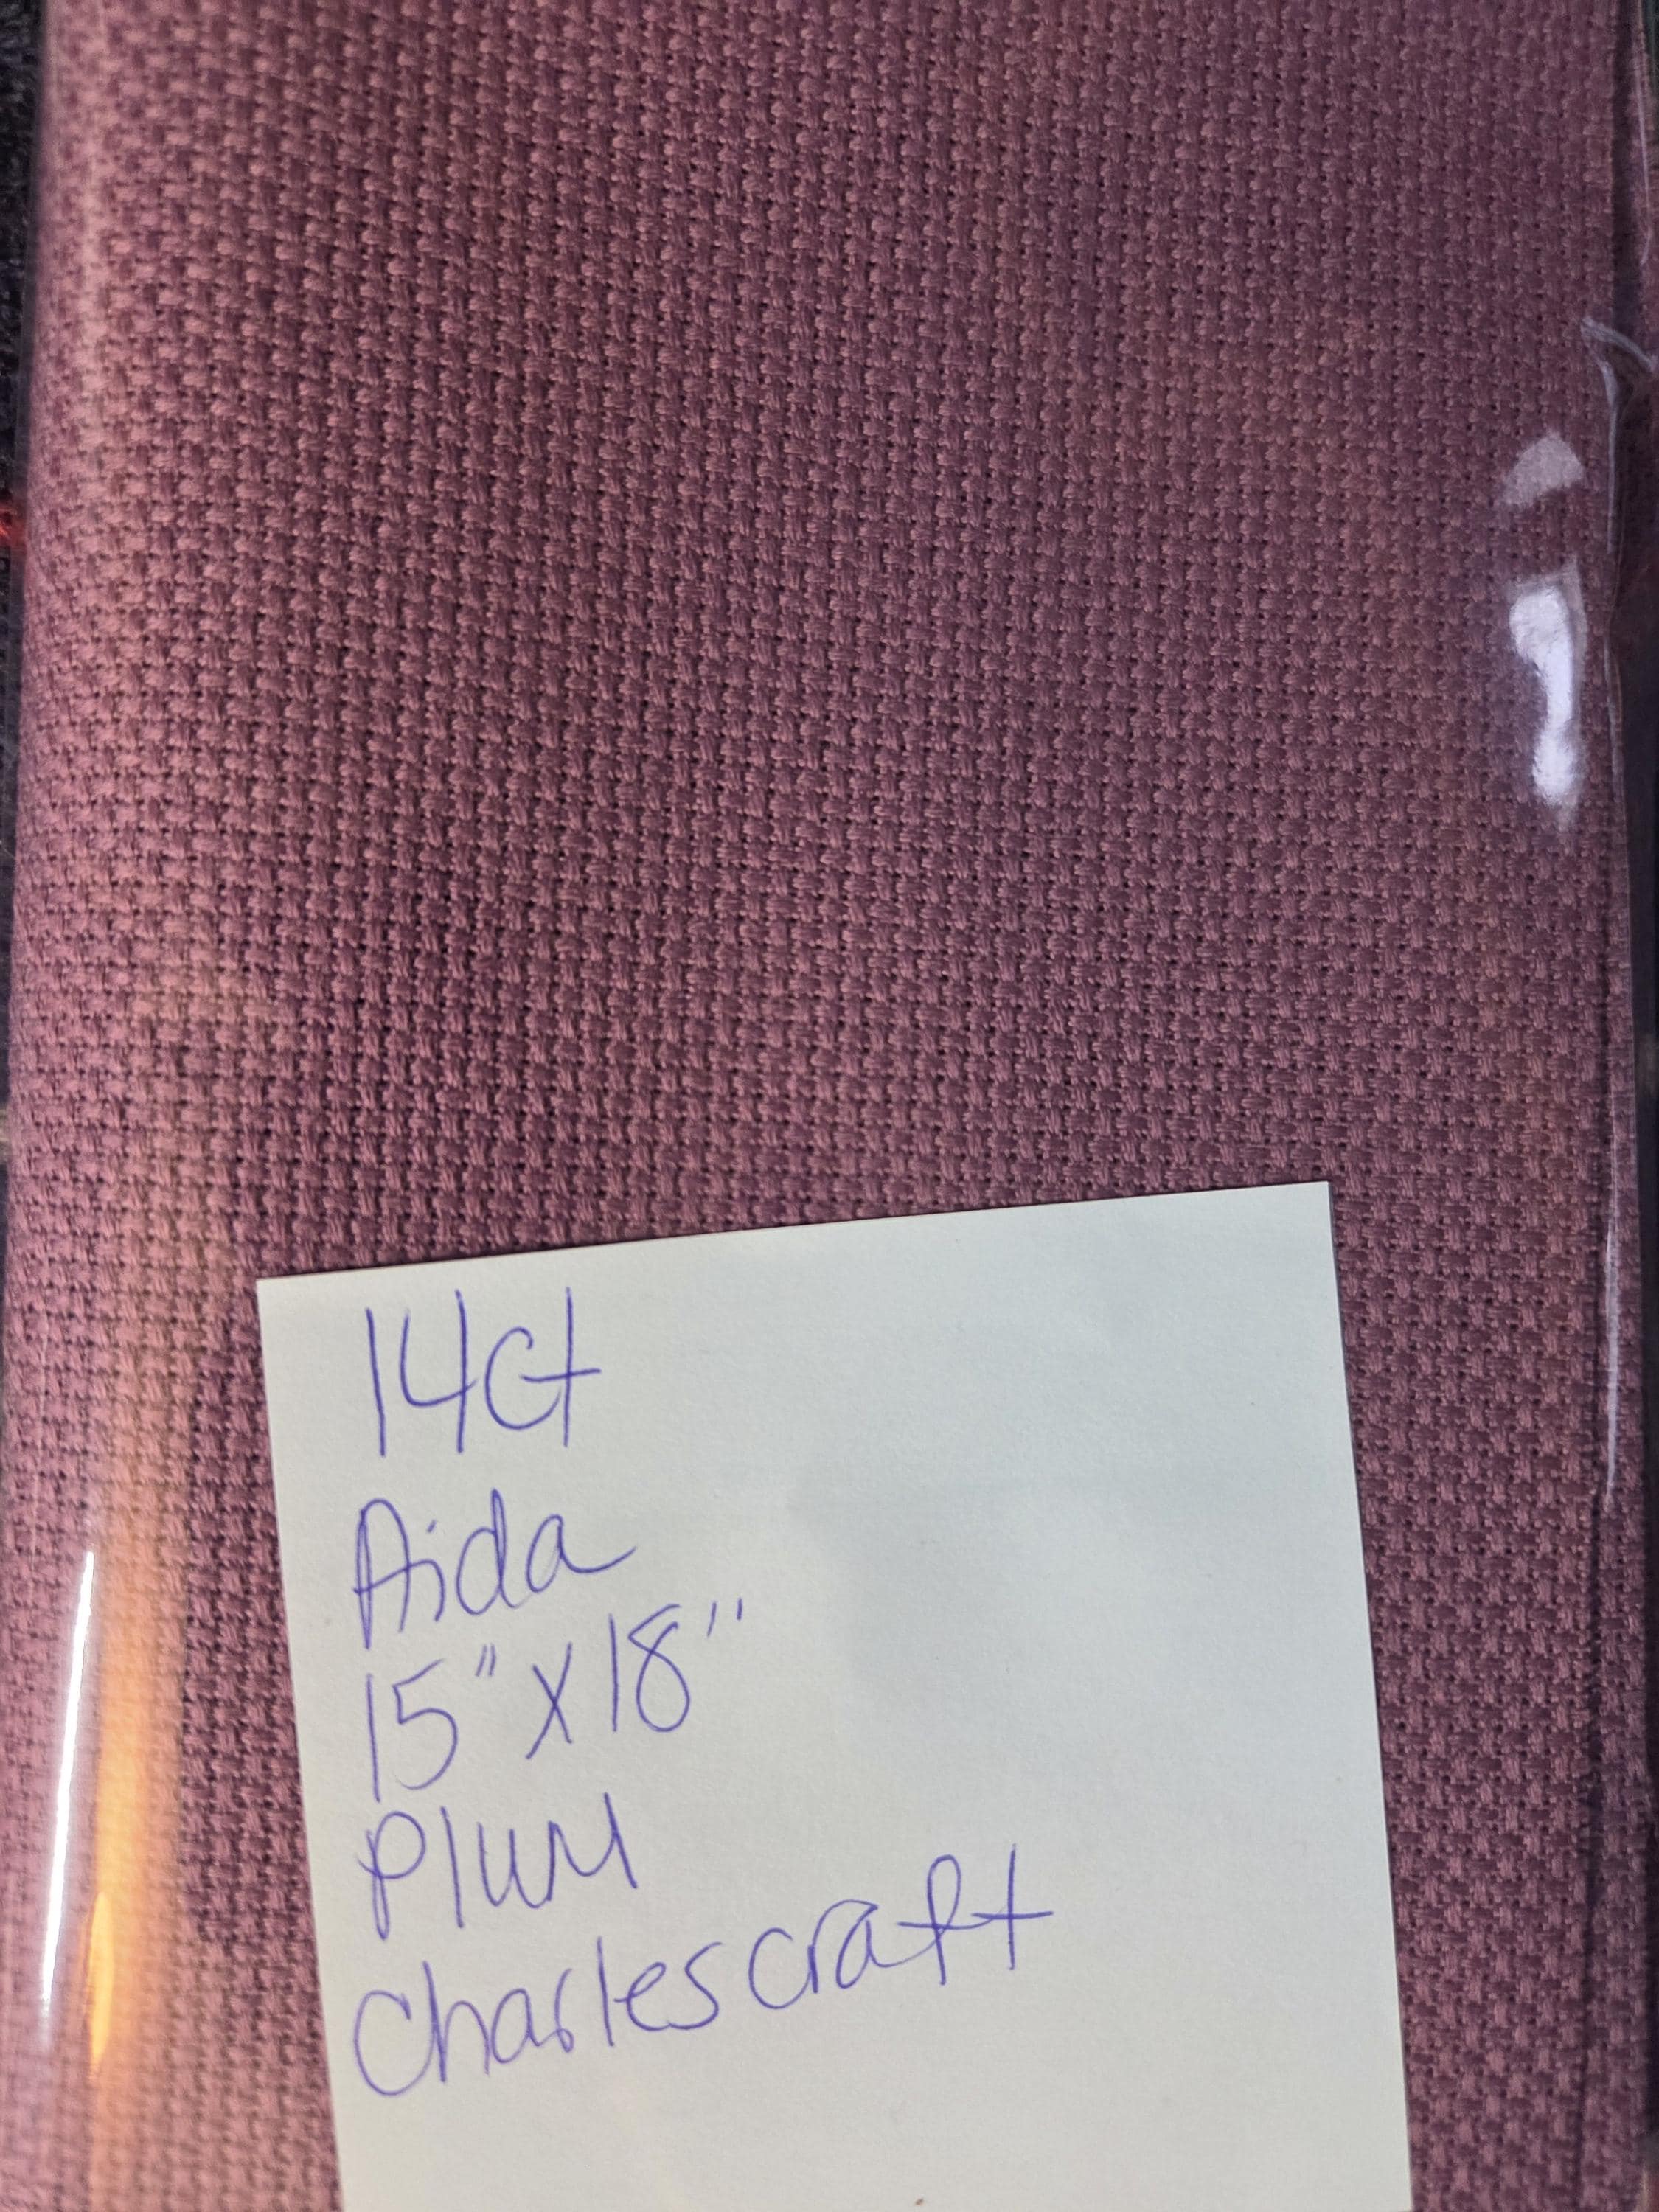 14ct
Aida
15" X 18"
Plum
Charlescraft